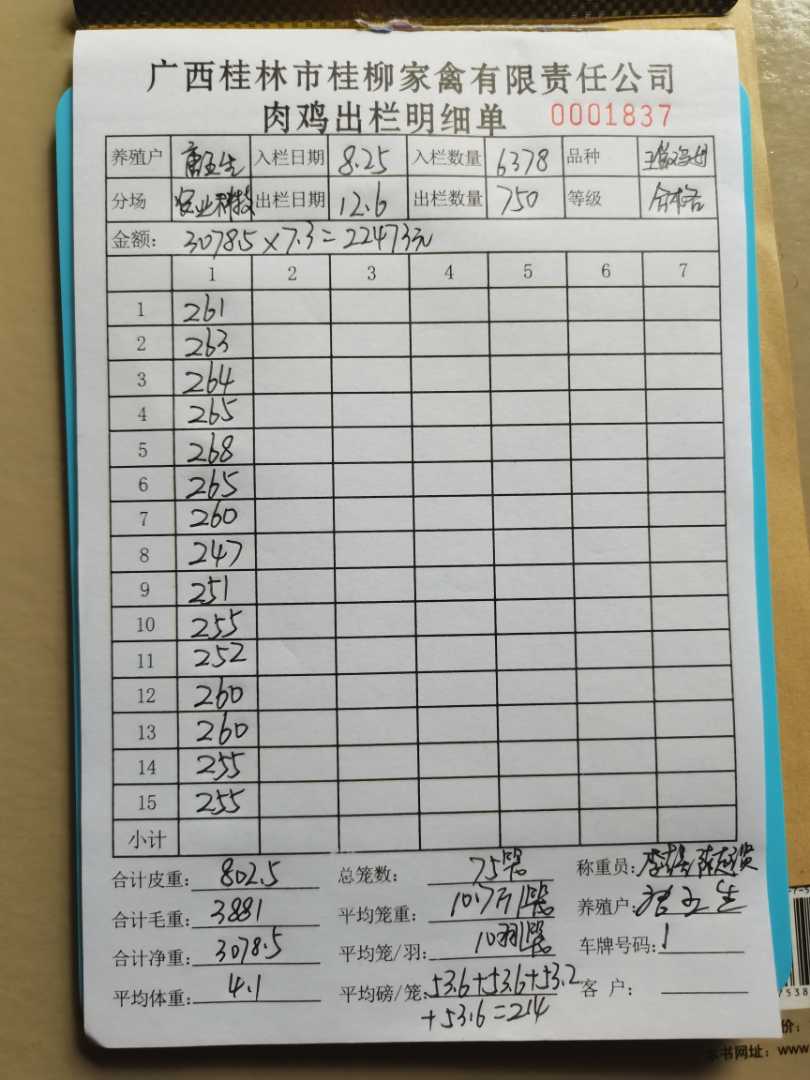 广西桂林市桂柳家禽有限责任公司
肉鸡出栏明细单 0001837
养殖户 唐五生 入栏日期 8.25 入栏数量 6378 品种
分场 农业科技 出栏日期 12.6 出栏数量 750 等级 合格
金额: 3078.5×7.3=22473元
1 2 3 4 5 6 7
1 261
2 263
3 264
4 265
5 268
6 265
7 260
8 247
9 251
10 255
11 252
12 260
13 260
14 255
15 255
小计
合计皮重: 802.5 总笼数: 75笼 称重员:
合计毛重: 3881 平均笼重: 10.7斤/笼 养殖户: 唐五生
合计净重: 3078.5 平均笼/羽: 10羽/笼 车牌号码: 1
平均体重: 4.1 平均磅/笼: 53.6+53.6+53.2 客 户:
+53.6=214
价:
本书网址: www